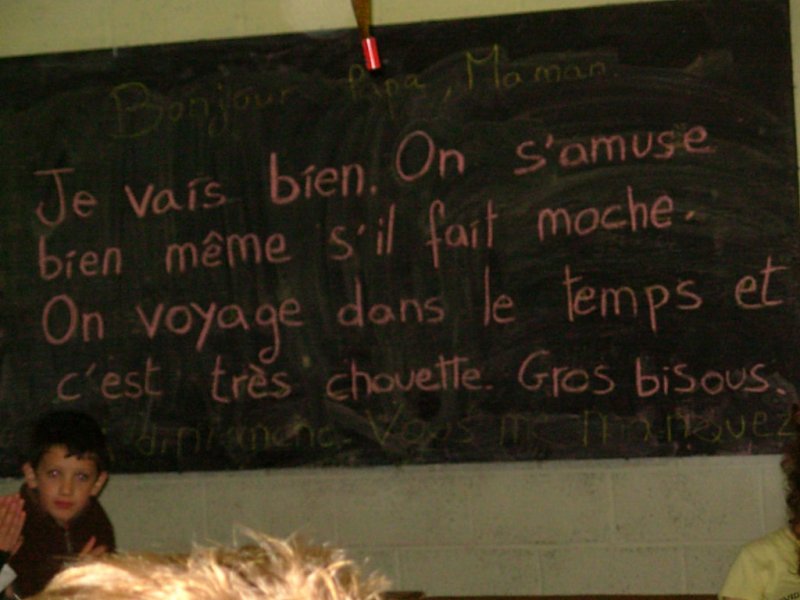 Bonjour Papa, Maman.
Je vais bien. On s'amuse
bien même s'il fait moche.
On voyage dans le temps et
c'est très chouette. Gros bisous.
dimanche. Vous me manquez